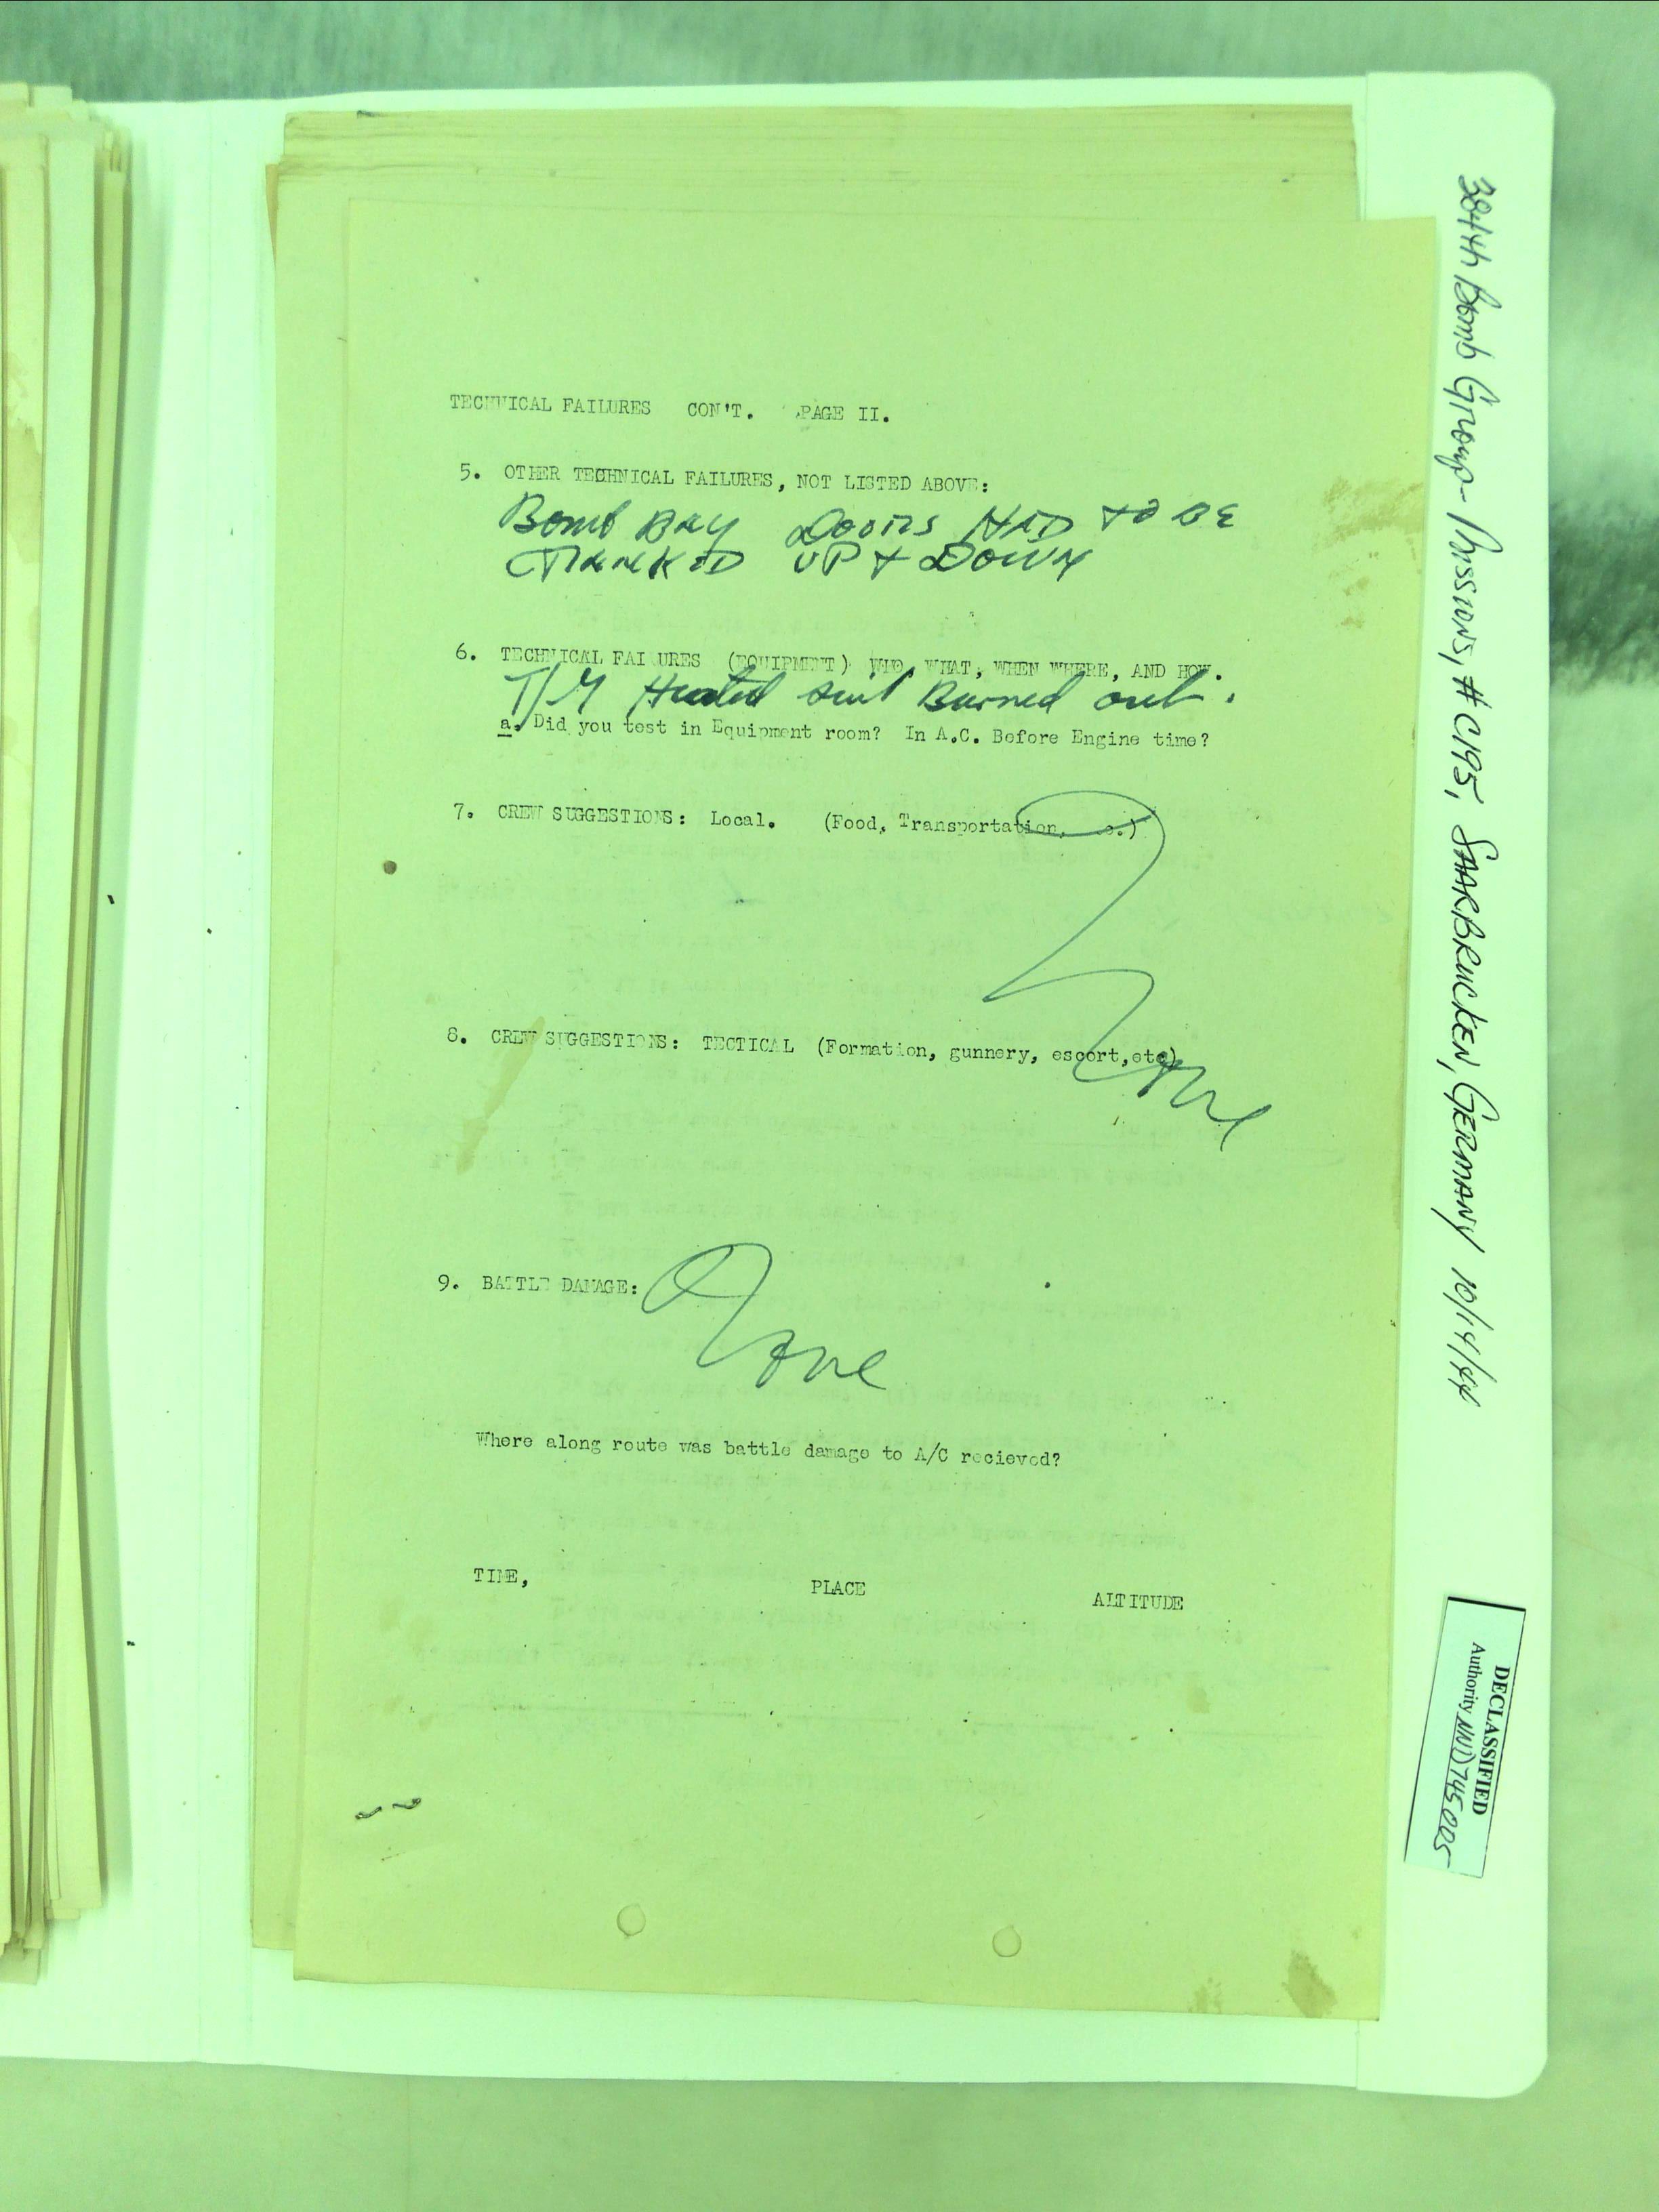 TECHNICAL FAILURES CON'T. PAGE II.
5. OTHER TECHNICAL FAILURES, NOT LISTED ABOVE:
Bomb BAY Doors HAD to BE
CRANKED UP & DOWN
6. TECHNICAL FAILURES (EQUIPMENT) WHO, WHAT, WHEN WHERE, AND HOW.
T/G Heated suit Burned out.
a. Did you test in Equipment room? In A.C. Before Engine time?
7. CREW SUGGESTIONS: Local. (Food, Transportation, )
8. CREW SUGGESTIONS: TECTICAL (Formation, gunnery, escort,etc)
None
9. BATTLE DAMAGE:
None
Where along route was battle damage to A/C recieved?
TIME, PLACE ALTITUDE
384th Bomb Group- Missions, #C195, SAARBRUCKEN, GERMANY 10/14/44
DECLASSIFIED
Authority NND745005